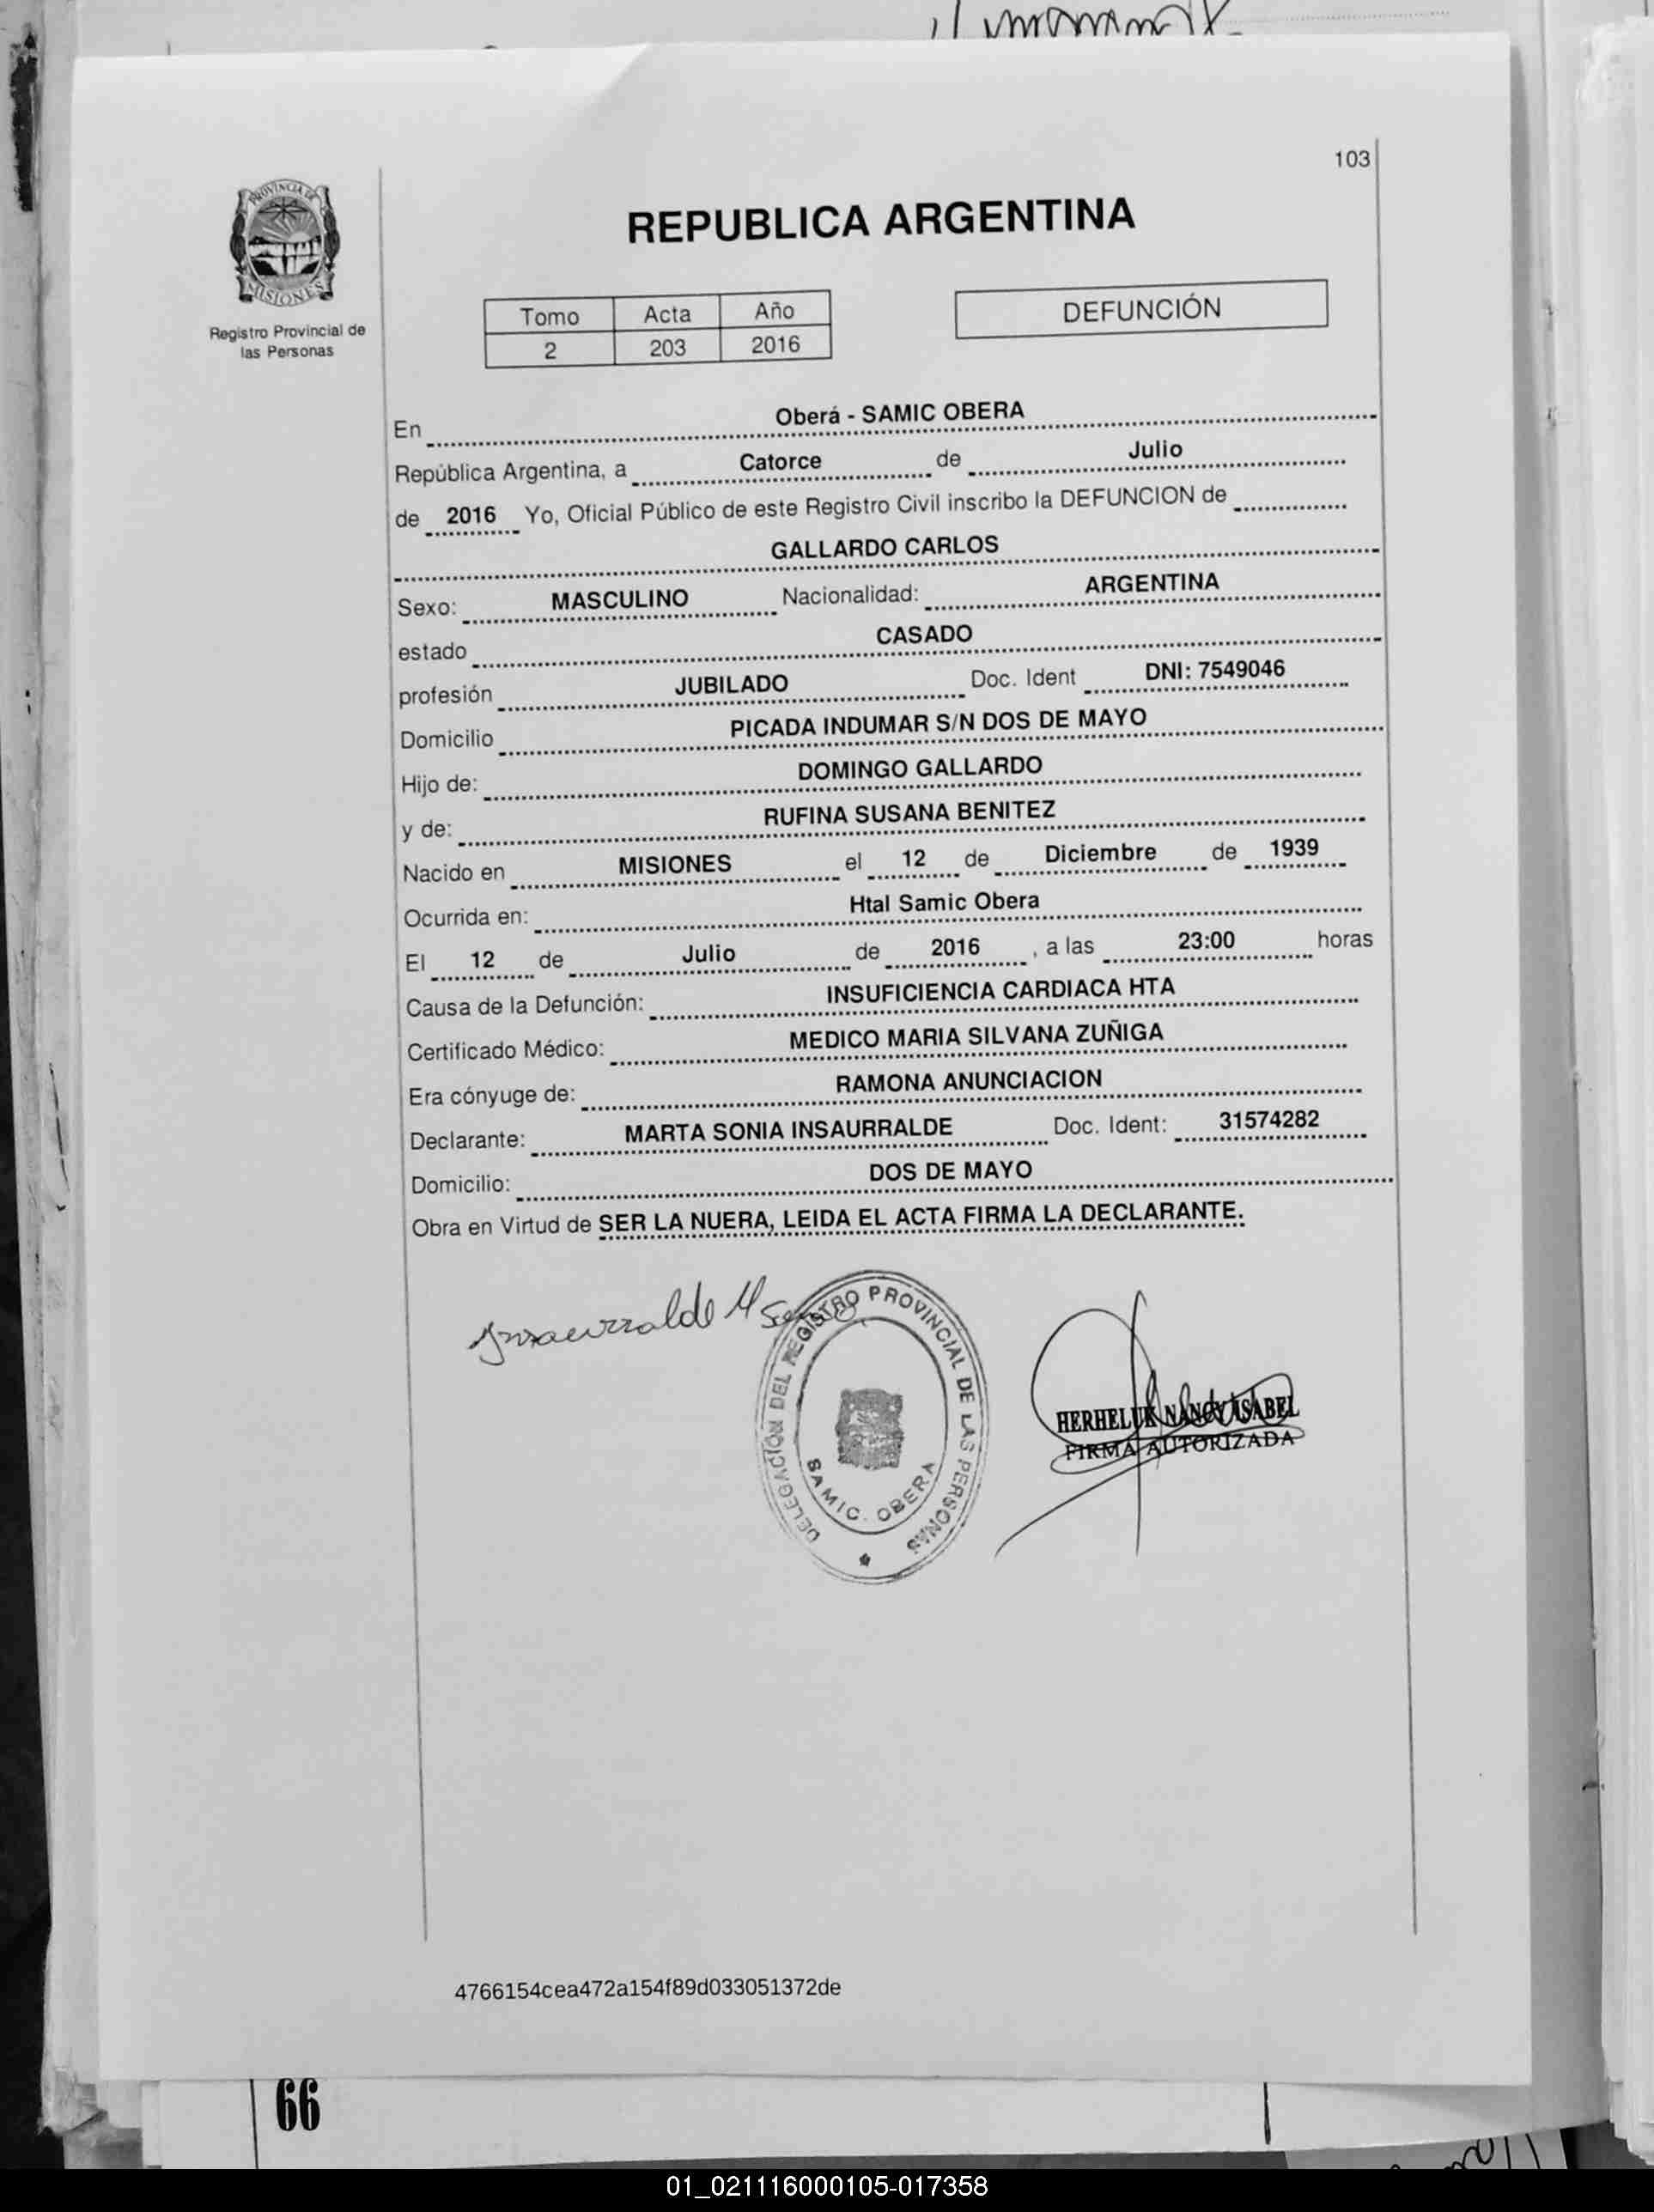 103
PROVINCIA DE
MISIONES
Registro Provincial de
las Personas
REPUBLICA ARGENTINA
Tomo Acta Año
2 203 2016
DEFUNCIÓN
En Oberá - SAMIC OBERA
República Argentina, a Catorce de Julio
de 2016 Yo, Oficial Público de este Registro Civil inscribo la DEFUNCION de
GALLARDO CARLOS
Sexo: MASCULINO Nacionalidad: ARGENTINA
estado CASADO
profesión JUBILADO Doc. Ident DNI: 7549046
Domicilio PICADA INDUMAR S/N DOS DE MAYO
Hijo de: DOMINGO GALLARDO
y de: RUFINA SUSANA BENITEZ
Nacido en MISIONES el 12 de Diciembre de 1939
Ocurrida en: Htal Samic Obera
El 12 de Julio de 2016 , a las 23:00 horas
Causa de la Defunción: INSUFICIENCIA CARDIACA HTA
Certificado Médico: MEDICO MARIA SILVANA ZUÑIGA
Era cónyuge de: RAMONA ANUNCIACION
Declarante: MARTA SONIA INSAURRALDE Doc. Ident: 31574282
Domicilio: DOS DE MAYO
Obra en Virtud de SER LA NUERA, LEIDA EL ACTA FIRMA LA DECLARANTE.
Insaurralde M
DELEGACIÓN DEL REGISTRO PROVINCIAL DE LAS PERSONAS
SAMIC. OBERA
HERHELUK NANCY ISABEL
FIRMA AUTORIZADA
4766154cea472a154f89d033051372de
66
01_021116000105-017358